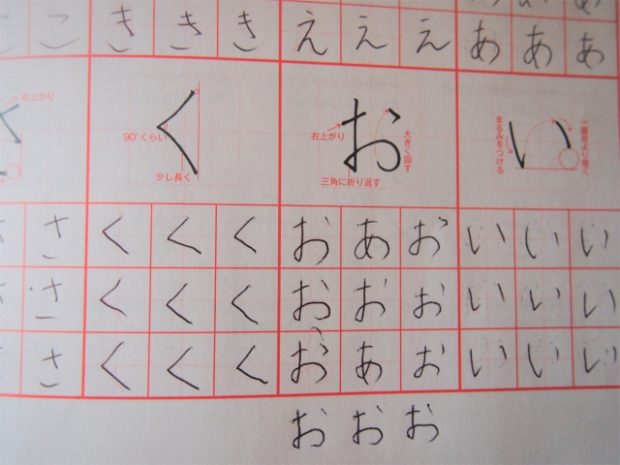 こ こ き き き え え え あ あ あ
右上がり
く
90°くらい
少し長く
お
右上がり
大きく回す
三角に折り返す
い
まるみをつける
一画目より短く
さ く く く お あ お い い い
さ く く く お お お い い い
さ く く く お あ お い い い
お お お